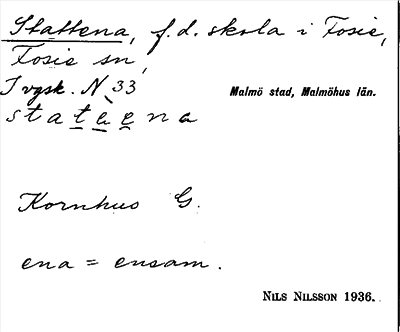 Stattena, f.d. skola i Fosie,
Fosie sn,
I vgsk. N 33
Malmö stad, Malmöhus län.
stateena
Kornhus G.
ena = ensam.
NILS NILSSON 1936.